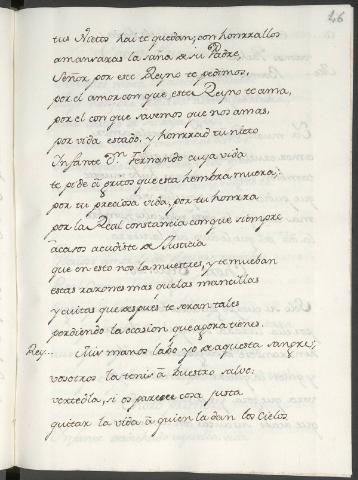 46
tus Nietos hai te quedan; con honrrallos
amansaras la saña de su Padre,
Señor por este Reyno te pedimos,
por el amor con que este Reyno te ama,
por el con que savemos que nos amas,
por vida estado, y honrrad tu nieto
Infante Dn. Fernando cuya vida
te pide a gritos que esta hembra muera;
por tu preciosa vida, por tu honrra
por la Real constancia con que siempre
acasos acudiste de Justicia
que en esto nos la muestres, y te mueban
estas razones mas que las mancillas
y cuitas que despues te seran tales
perdiendo la ocasion que agora tienes.
Rey... Mis manos labo yo de aquesta sangre;
vosotros la teneis a vuestro salvo:
verteola, si os parece cosa justa
quitar la vida a quien la dan los Cielos